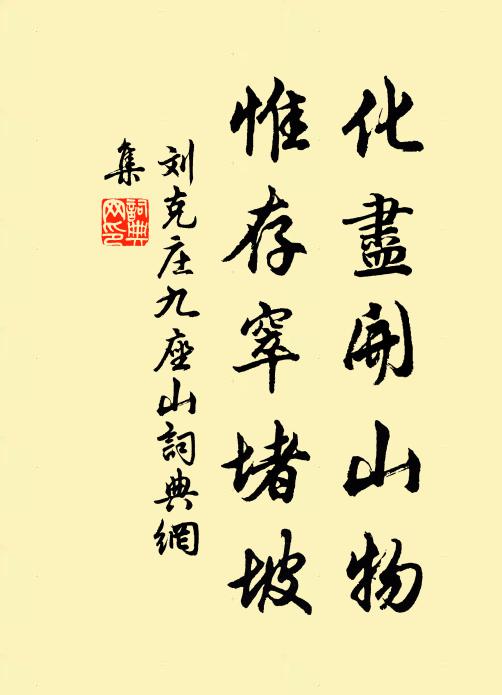 化盡開山物
惟存窣堵坡
刘克庄九座山詞典網
集
詞典網印